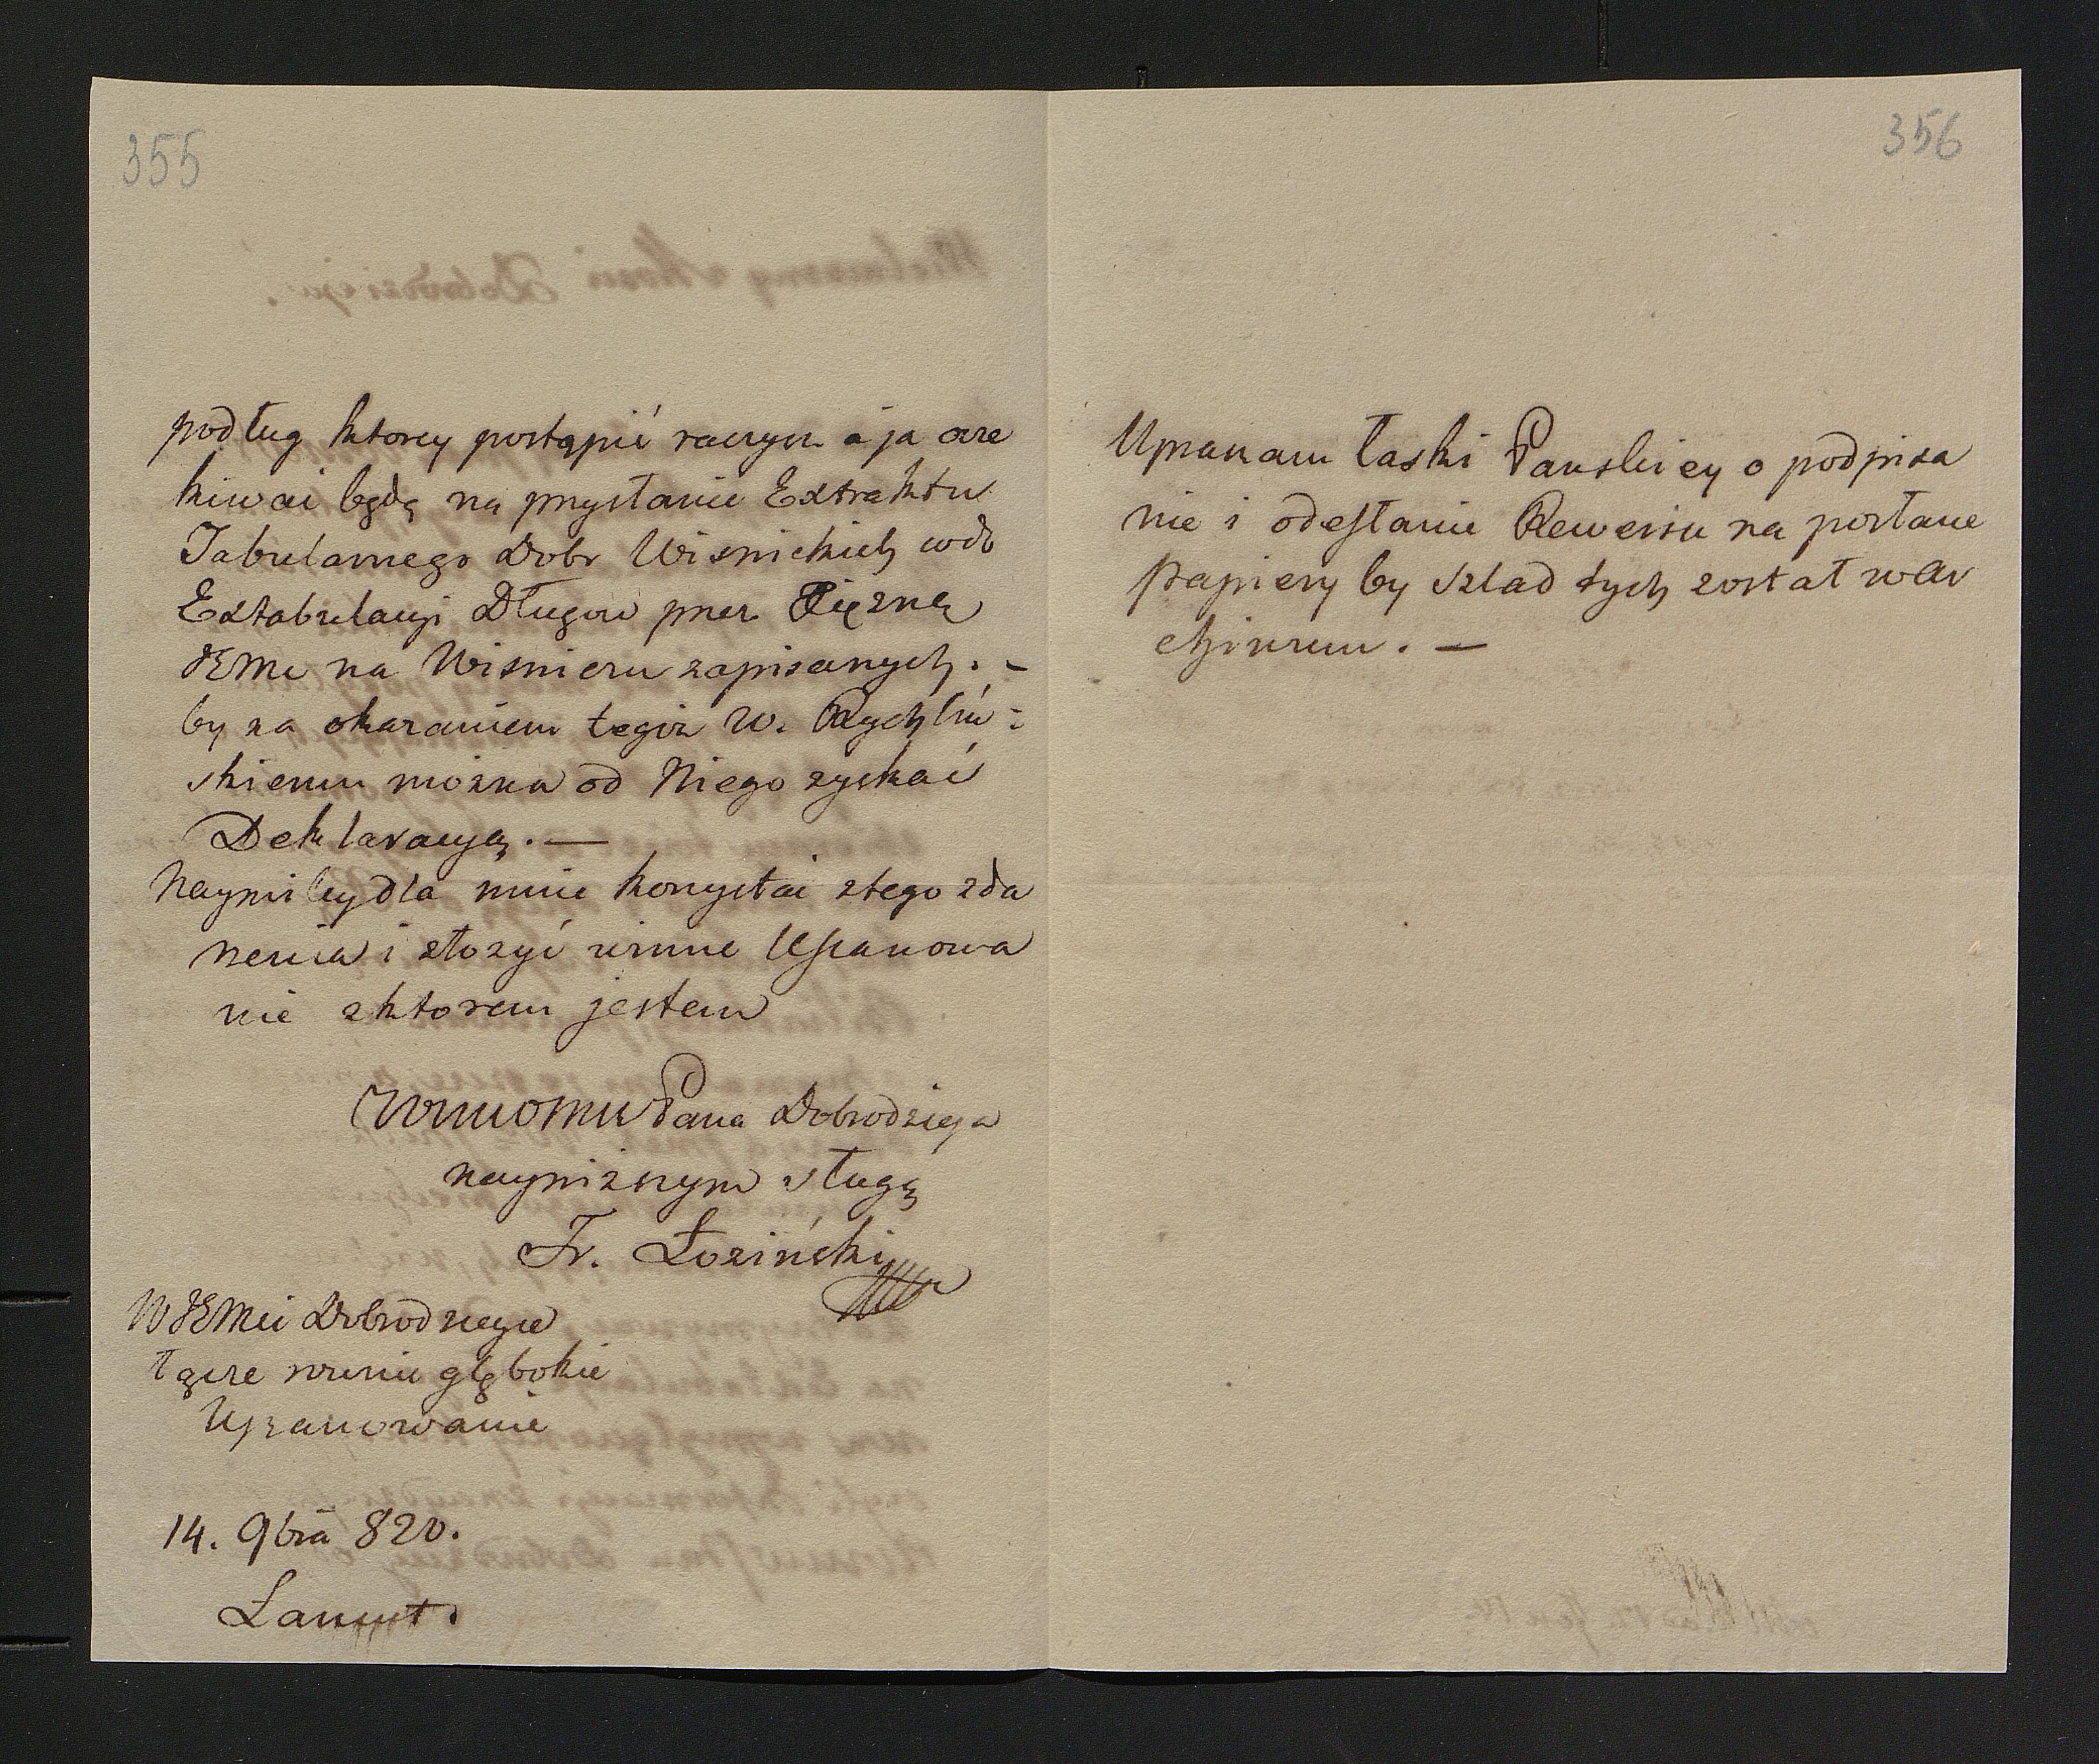 355
podług ktorey postąpić raczysz a ja ocze
kiwać będę na przysłanie Extraktu
Tabularnego Dobr Wisnickich wdo
Extabulacyi Długow przez Xiężnę
JEMć na Wisniczu zapisanych. –
by za okazaniem tegoż W. Rychliń-
skiemu można od Niego zyskać
Deklaracyą. —
Naymiley dla mnie korzystać ztego zda
rzenia i złożyć winne Uszanowa
nie zktorem jestem
Pana Dobrodzieja
nayniższym sługą
Fr. Łoziński
WJEMci Dobrodzieyce
łączę moje głębokie
Uszanowanie
14. 9bra 820.
Łancut.
356
Upraszam łaski Pańskiey o podpisa
nie i odesłanie Rewersu na posłane
papiery by szlad tych został w Ar
chiwum. —